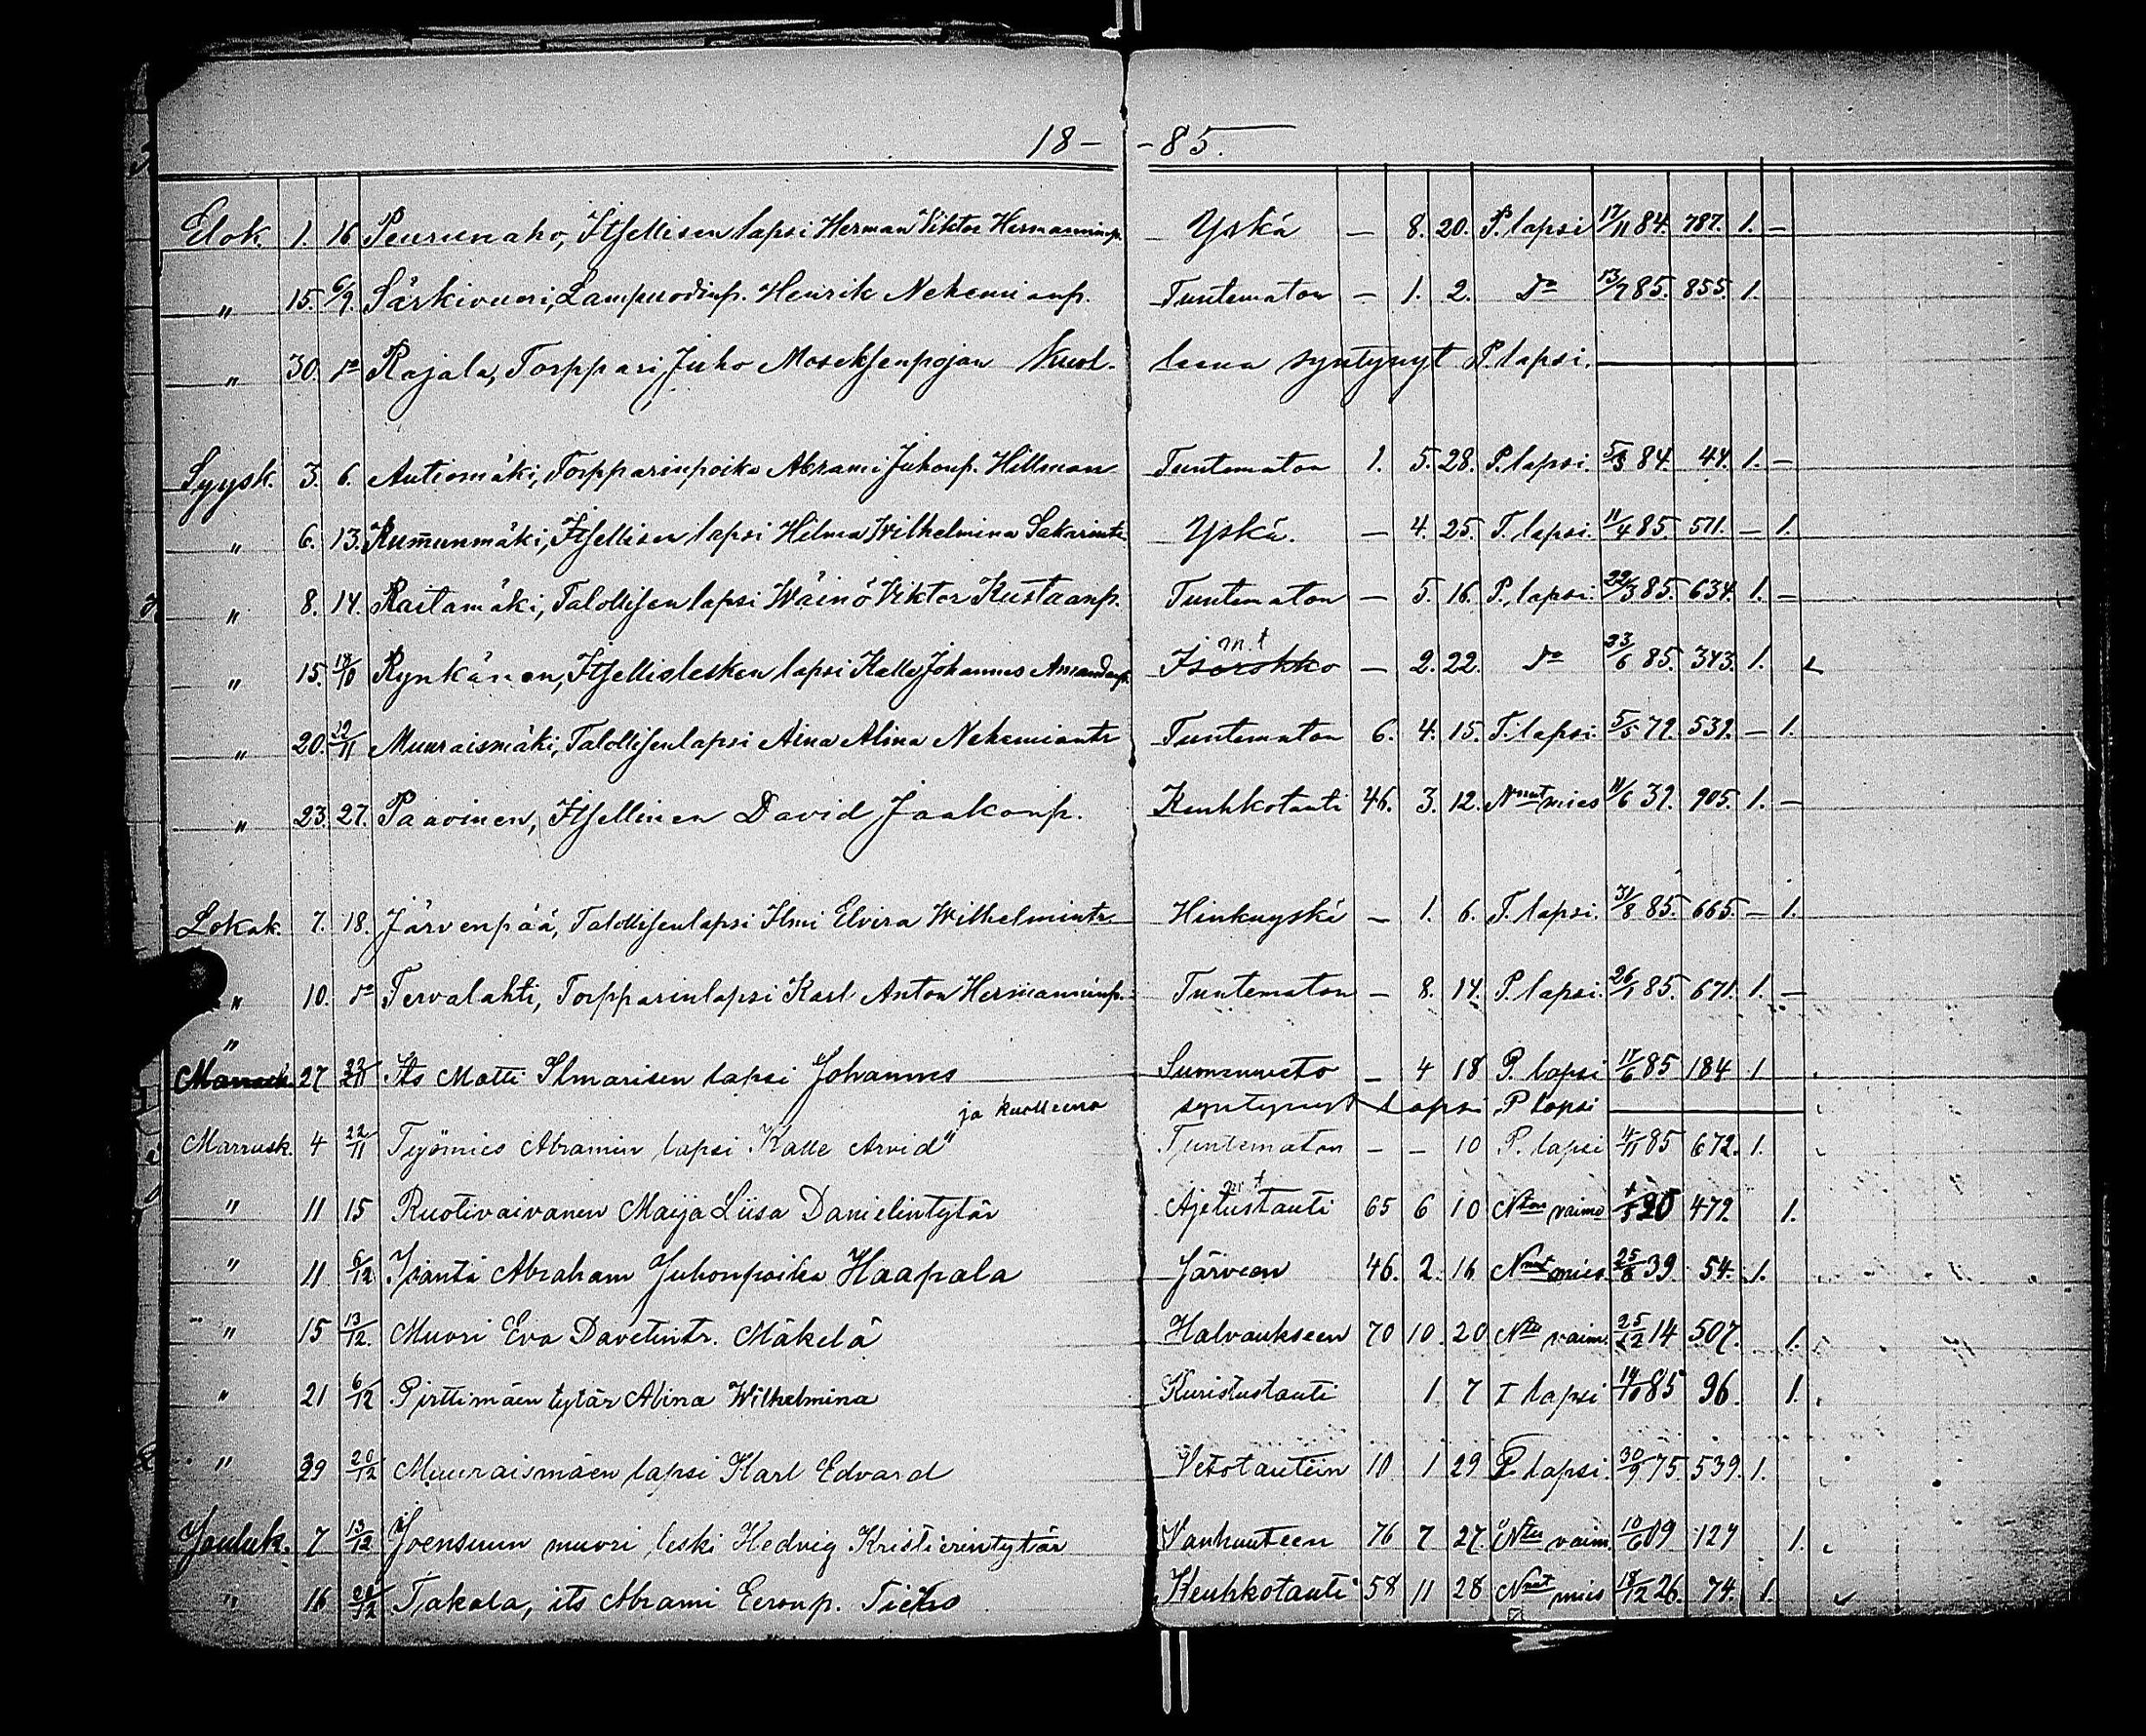 18- -85.
Elok. 1. 16. Peurunaho, Itsellisen lapsi Herman Viktor Hermanninp. Yskä — 8. 20. P. lapsi 17/11 84. 787. 1. —
" 15. 6/9. Särkivuori, Lampuodinp. Henrik Nehemianp. Tuntematon — 1. 2. do 13/7 85. 855. 1.
" 30. do Rajala, Torppari Juho Moseksenpojan kuol- leena syntynyt P. lapsi.
Syysk. 3. 6. Autiomäki, Torpparinpoika Abrami Juhonp. Hillman Tuntematon 1. 5. 28. P. lapsi. 5/3 84. 44. 1. —
" 6. 13. Rum̄unmäki, Itsellisen lapsi Hilma Wilhelmina Sakarintr. Yskä. — 4. 25. T. lapsi. 11/4 85. 571. — 1.
" 8. 14. Raitamäki, Talollisen lapsi Wäinö Viktor Kustaanp. Tuntematon — 5. 16. P. lapsi. 22/3 85. 634. 1. —
" 15. 18/10 Rynkänen, Itsellislesken lapsi Kalle Johannes Amandanp. Isorokko m.t — 2. 22. do 23/6 85. 343. 1.
" 20. 22/11 Muuraismäki, Talollisenlapsi Aina Alina Nehemiantr Tuntematon 6. 4. 15. T. lapsi. 5/5 79. 539. — 1.
" 23. 27. Paavinen, Itsellinen David Jaakonp. Keuhkotauti 46. 3. 12. Nnut mies 11/6 39. 905. 1. —
Lokak. 7. 18. Järvenpää, Talollisenlapsi Ilmi Elvira Wilhelmintr. Hinkuyskä — 1. 6. T. lapsi. 31/8 85. 665. — 1.
" 10. do Tervalahti, Torpparinlapsi Karl Anton Hermanninp. Tuntematon — 8. 14. P. lapsi. 26/1 85. 671. 1. —
" 27 22/11 Its Matti Ilmarisen lapsi Johannes Suonenveto — 4 18 P. lapsi 17/6 85 184 1
ja kuolleena syntynyt lapsi P lapsi
Marrask. 4 22/11 Työmies Abramin lapsi Kalle Arvid" Tuntematon — — 10 P. lapsi 4/11 85 672. 1.
" 11 15 Ruotivaivanen Maija Liisa Danielintytär Ajetustauti m t 65 6 10 Ntu vaimo 1/5 20 479. 1.
" 11 6/12 Isäntä Abraham Juhonpoika Haapala Järveen 46. 2. 16 Nnut mies 25/8 39. 54. 1.
" 15 13/12. Muori Eva Davetintr. Mäkelä Halvaukseen 70 10. 20. Ntu vaim. 25/12 14 507. 1.
" 21 6/12 Pirttimäen tytär Alina Wilhelmina Kuristustauti 1 7 T lapsi 14/10 85 96. 1.
" 29 20/12 Muuraismäen lapsi Karl Edvard Vetotautiin 10 1 29 P. lapsi. 30/9 75. 539. 1.
Jouluk. 7 13/12 Joensuun muori leski Hedvig Kristierintytär Vanhuuteen 76 7 27. Ntu vaim. 10/6 09 127 1.
" 16 26/12 Takala, its Abrami Eeronp. Tieho Keuhkotauti 58 11 28 Nnut mies 18/12 26. 74. 1.